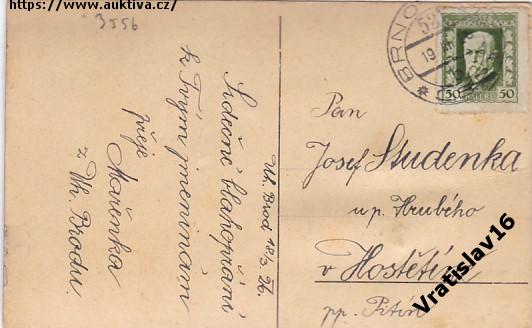 https://www.auktiva.cz/
3556
Uh. Brod 18/3 26.
Srdečné blahopřání
k Tvým jmeninám
přeje
Mařenka
z Uh. Brodu.
BRNO
ČESKOSLOVENSKÁ
50 50
Pan
Josef Studenka
u p. Hrubého
v Hostětín
pp. Pitín
Vratislav16